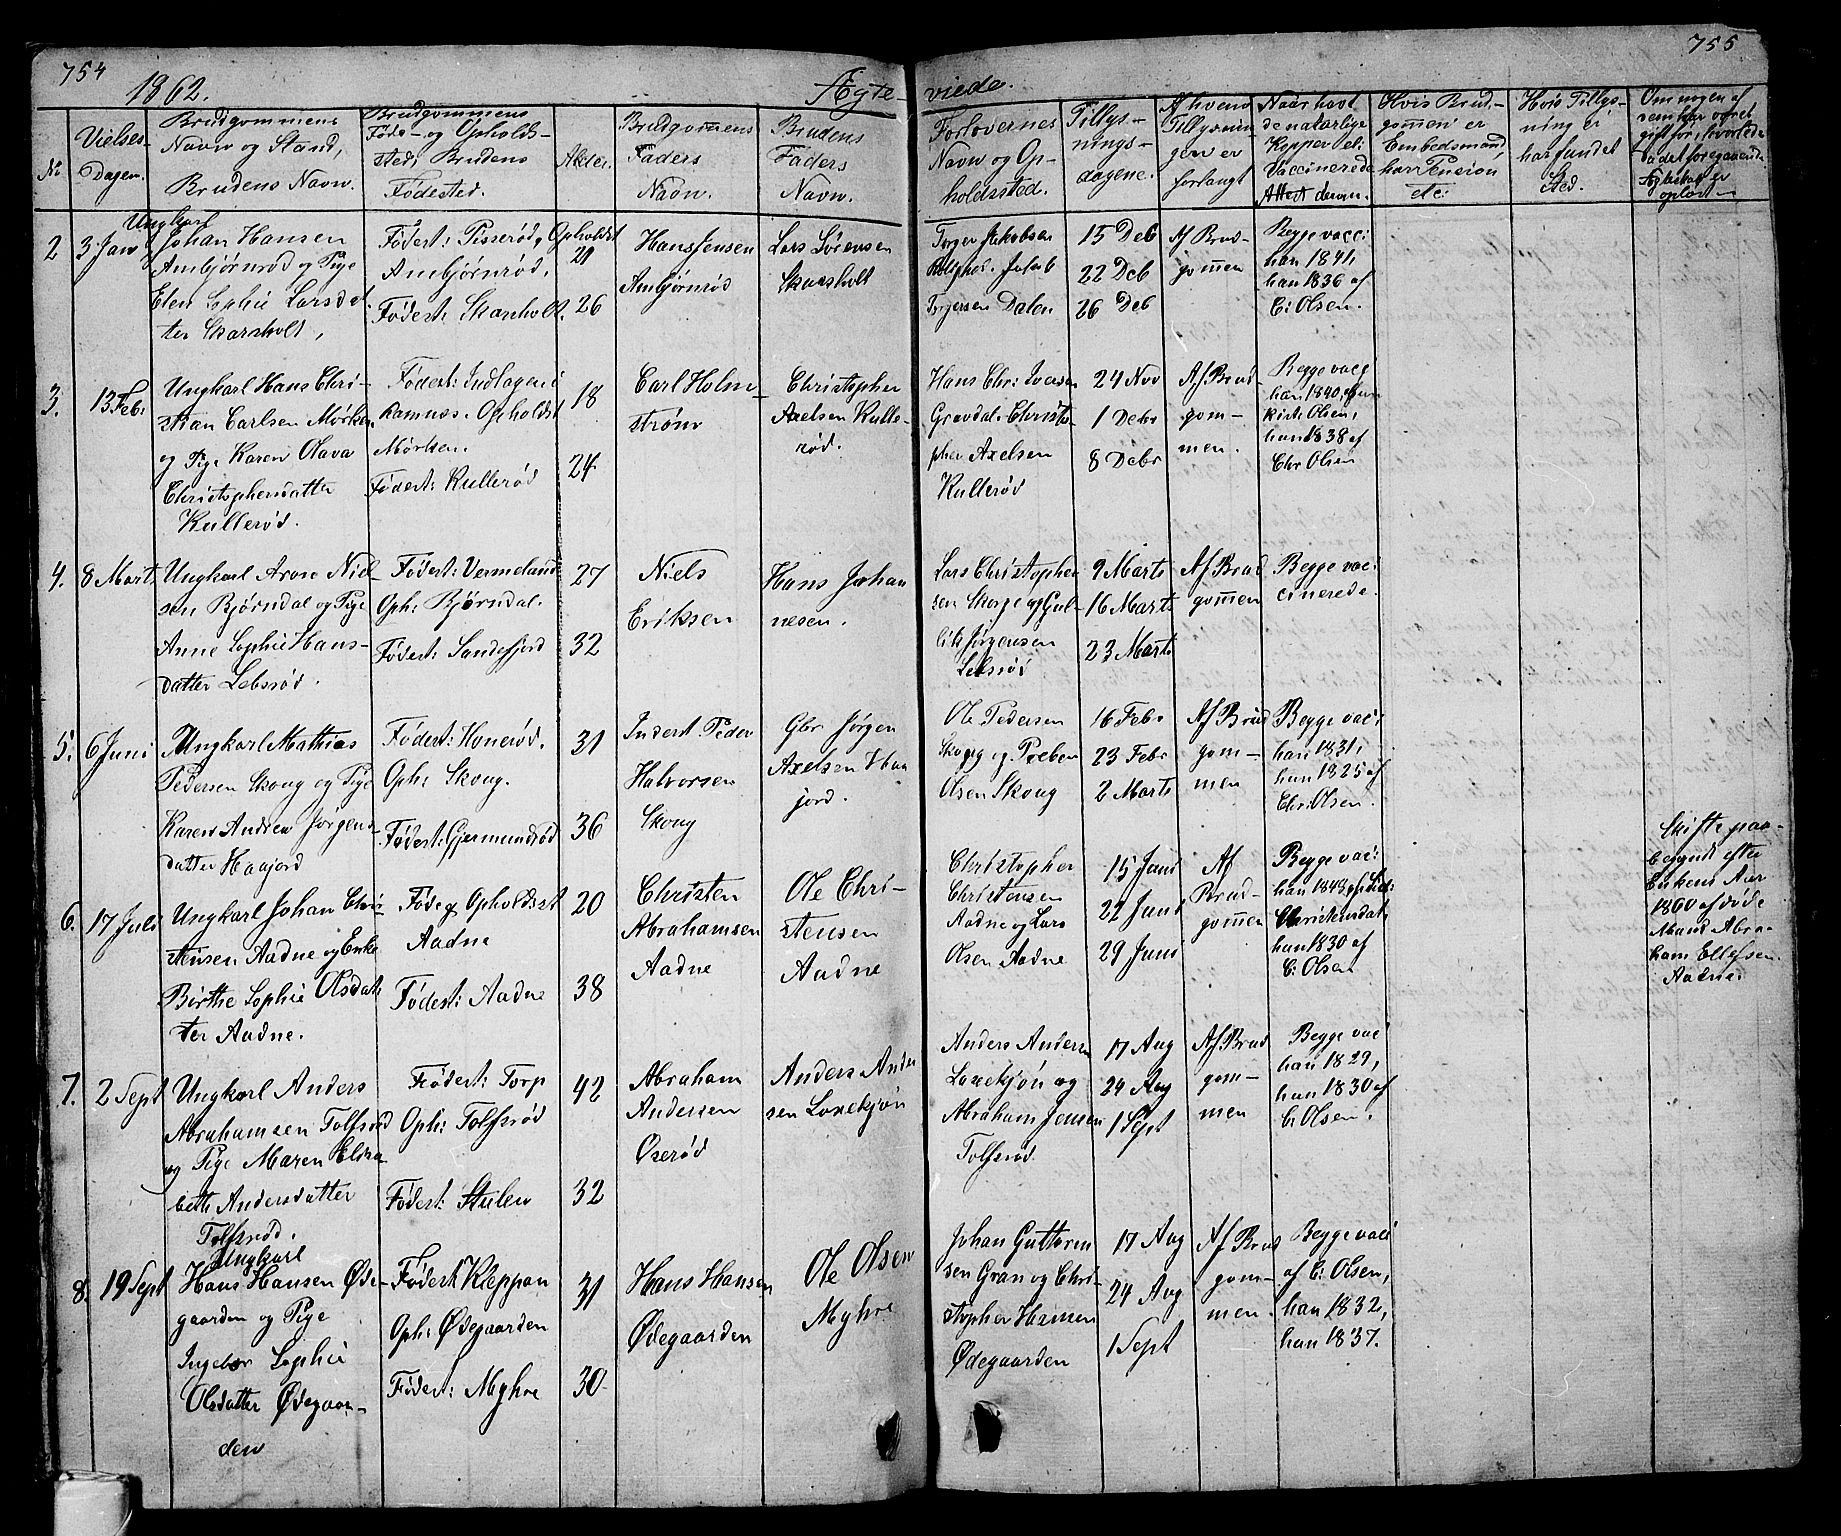 754
1862.
Ægte-
viede.
755
No
Vielses-
Dagen.
Brudgommens
Navn og Stand,
Brudens Navn.
Brudgommens
Føde- og Opholds-
sted; Brudens
Fødested.
Alder.
Brudgommens
Faders
Navn.
Brudens
Faders
Navn.
Forlovernes
Navn og Op-
holdssted.
Tillys-
nings-
dagene.
Af hvem
Tillysnin-
gen er
forlangt
Naar havt
de naturlige
Kopper el:
Vaccinerede
Attest derom.
Hvis Brud-
gommen er
Embedsmand,
har Pension
etc:
Hvis Tillys-
ning ei
har fundet
Sted.
Om nogen af
dem har været
gift før, hvorledes
det foregaaende
Ægteskab er
opløst
2
3 Jan
Ungkarl
Johan Hansen
Ambjørnrød og Pige
Elen Sophie Larsdat
ter Skarsholt,
Fødest: Pisserød, Opholdst
Ambjørnrød,
Fødest: Skarsholt.
21
26
Hans Jensen
Ambjørnrød
Lars Sørensen
Skarsholt
Torger Jakobsen
Jakob
Torgersen Dalen
15 Deb
22 Deb
26 Deb
Af Brud-
gommen
Begge vacc:
han 1841,
hun 1836 af
C: Olsen.
3.
13 Feb:
Ungkarl Hans Chri-
stian Carlsen Mørken
og Pige Karen Olava
Christophersdatter
Kullerød.
Fødest: Indlageri
Ramnæs. Opholdst
Mørken.
Fødest: Kullerød
18
24
Carl Holm-
strøm
Christopher
Axelsen Kulle-
rød.
Hans Chr: Iversen
Gravdal. Christo-
pher Axelsen
Kullerød
24 Nov
1 Debr
8 Debr
Af Brud-
gom-
men.
Begge vacc
han 1840, af
Olsen,
hun 1838 af
Chr Olsen
4.
8 Mart
Ungkarl Arne Niel-
sen Bjørndal og Pige
Anne Sophie Hans-
datter Lebsrød.
Fødest: Vermeland
Oph: Bjørndal.
Fødest: Sandefjord
27
32
Niels
Eriksen
Hans Johan
nesen.
Lars Christopher
sen Skorge og Gul-
lik Jørgensen
Lebsrød
9 Marts
16 Marts
23 Marts
Af Brud
gommen
Begge vac:
cinerede.
5.
6 Juni
Ungkarl Mathias
Pedersen Skoug og Pige
Karen Andrea Jørgens-
datter Haajord
Fødest: Honerød.
Oph: Skoug.
Fødest: Gjermundrød
31
36
Inderst Peder
Halvorsen
Skoug
Gbr Jørgen
Axelsen Haa
jord.
Ole Pedersen
Skoug og Preben
Olsen Skoug
16 Febr
23 Febr
2 Marts
Af Brud
gom-
men
Begge vac:
han 1831,
hun 1825 af
Chr: Olsen.
6.
17 Juli
Ungkarl Johan Chri-
stensen Aadne og Enke
Birthe Sophie Olsdat
ter Aadne.
Føde og Opholdsst
Aadne
Fødest: Aadne
20
38
Christen
Abrahamsen
Aadne
Ole Chri-
stensen
Aadne
Christopher
Christensen
Aadne og Lars
Olsen Aadne
15 Juni
22 Juni
29 Juni
Af
Brud-
gommen
Begge vac:
han 1843, af
Christensdat,
hun 1830 af
C: Olsen
Skifte paa-
begyndt efter
Enkens Aar
1860 afdøde
Mand Abra-
ham Ellefsen
Aadne.
7.
2 Sept
Ungkarl Anders
Abrahamsen Tolfsrød
og Pige Maren Elisa
beth Andersdatter
Tolfsrød.
Fødest: Torp
Oph: Tolfsrød
Fødest: Stulen
42
32
Abraham
Andersen
Oserød
Anders Ander
sen Loxekjøn
Anders Andersen
Loxekjøn og
Abraham Jensen
Tolfsrød
17 Aug
24 Aug
1 Sept
Af Brud
gom-
men
Begge vac
han 1829,
hun 1830 af
C: Olsen.
8.
19 Sept
Ungkarl
Hans Hansen Øde-
gaarden og Pige
Ingebor Sophie
Olsdatter Ødegaar-
den
Fødest Kleppan
Oph: Ødegaarden
Fødest: Myhre
31
30
Hans Hansen
Ødegaarden
Ole Olsen
Myhre
Johan Guttorm
sen Gran og Chri-
stopher Hansen
Ødegaarden
17 Aug
24 Aug
1 Sept
Af Brud
gom-
men.
Begge vacc
af C: Olsen,
han 1832,
hun 1837.